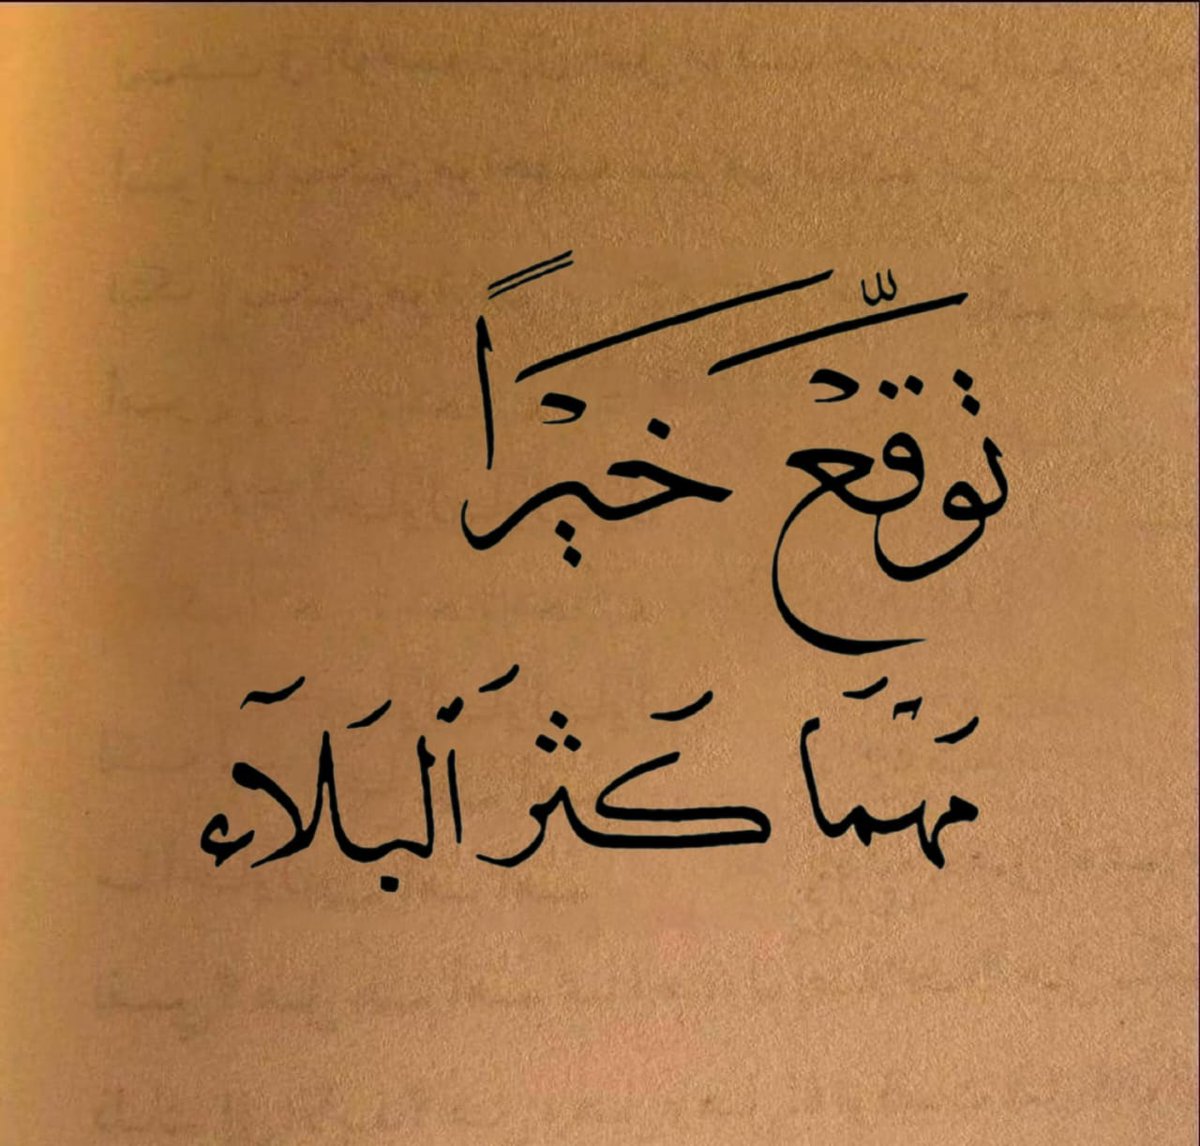 تَوَقَّعْ خَيْراً
مَهْمَا كَثُرَ ٱلبَلَآء